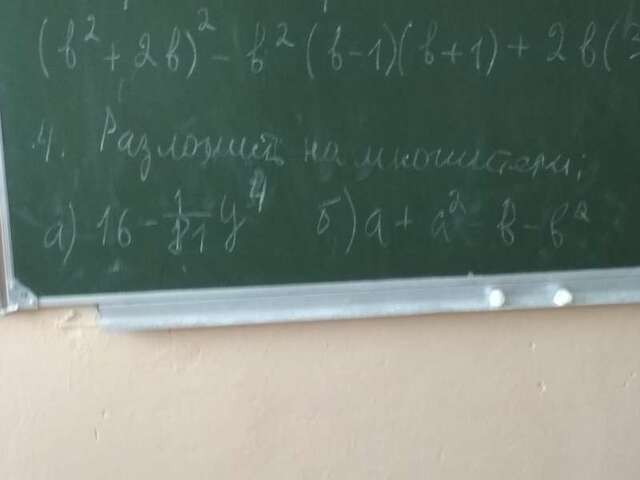 (b² + 2b)² - b² (b-1)(b+1) + 2b(
4. Разложить на множители:
а) 16 - 1/81 y⁴ б) a + a² - b - b²